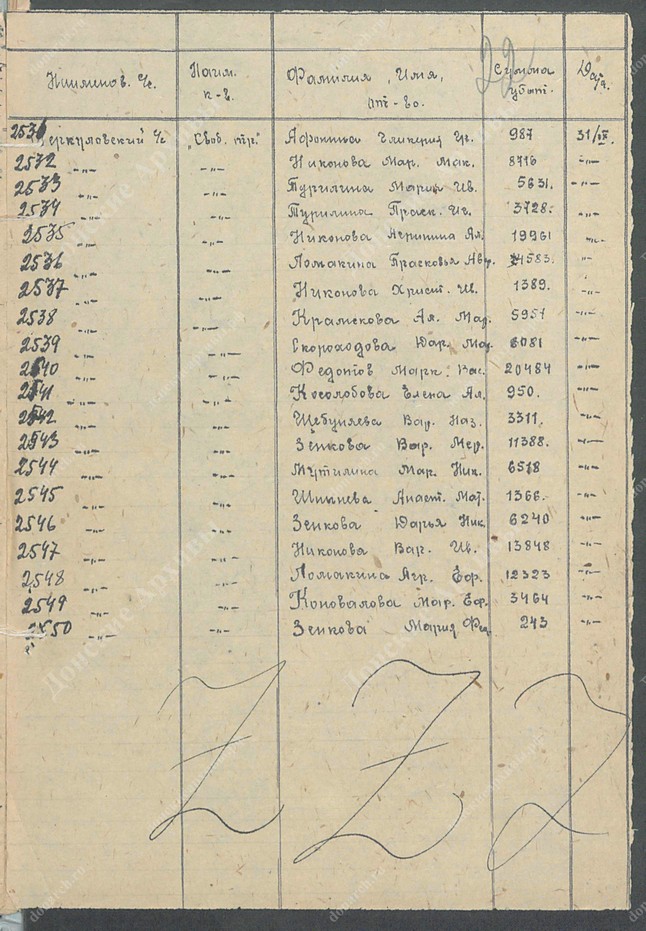 22
Наимен. с/с. Наим. к-в. Фамилия, Имя, от-во. Сумма убыт. Дата.
2531 Меркуловский с/с "Своб. тр." Афонина Гликерия Гр. 987 31/VII.
2532 -"- -"- Никонова Мар. Мак. 8716 -"-
2533 -"- -"- Турилина Мария Ив. 5631. -"-
2534 -"- -"- Турилина Праск. Иг. 3728. -"-
2535 -"- -"- Никонова Агрипина Ал. 19961 -"-
2536 -"- -"- Ломакина Прасковья 4583. -"-
2537 -"- -"- Никонова Христ. Ив. 1389. -"-
2538 -"- -"- Крамскова Ал. Мат. 5957 -"-
2539 -"- -"- Скороходова Дар. Мат. 6081 -"-
2540 -"- -"- Федотов Марк. Вас. 20484 -"-
2541 -"- -"- Косолобова Елена Ал. 950. -"-
2542 -"- -"- Шебуняева Вар. Наз. 3311. -"-
2543 -"- -"- Зенкова Вар. Мер. 11388. -"-
2544 -"- -"- Мутилина Мар. Ник. 6518 -"-
2545 -"- -"- Анаст. Мат. 1366. -"-
2546 -"- -"- Зенкова Дарья Ник. 6240 -"-
2547 -"- -"- Никонова Вар. Ив. 13848 -"-
2548 -"- -"- Ломакина Агр. Ефр. 12323 -"-
2549 -"- -"- Коновалова Мар. Ефр. 3464 -"-
2550 -"- -"- Зенкова Мария Фед. 243 -"-